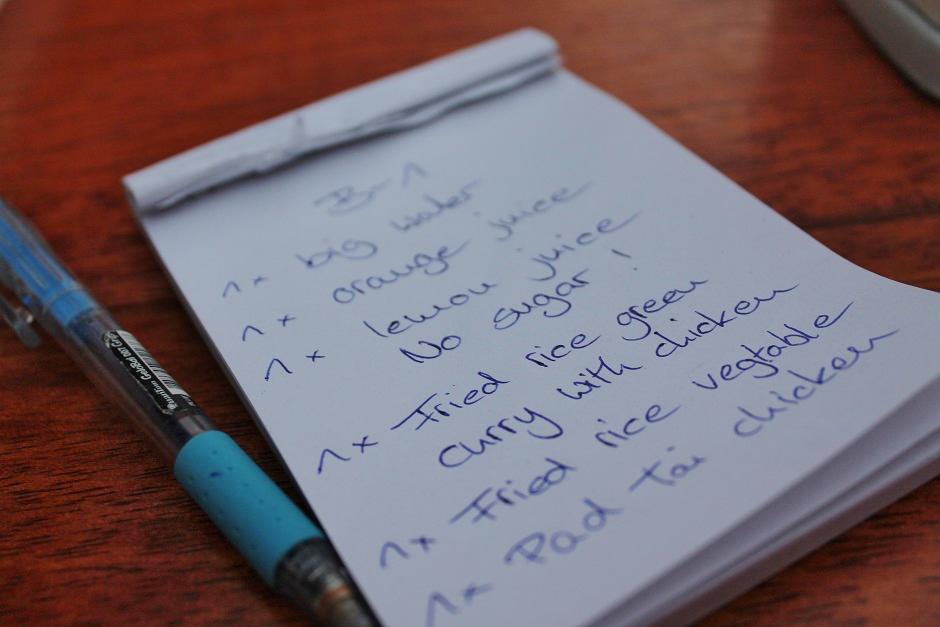 B-1
1x big water
1x orange juice
1x lemon juice
No sugar!
1x Fried rice green
curry with chicken
1x Fried rice vegtable
1x Pad Tai chicken